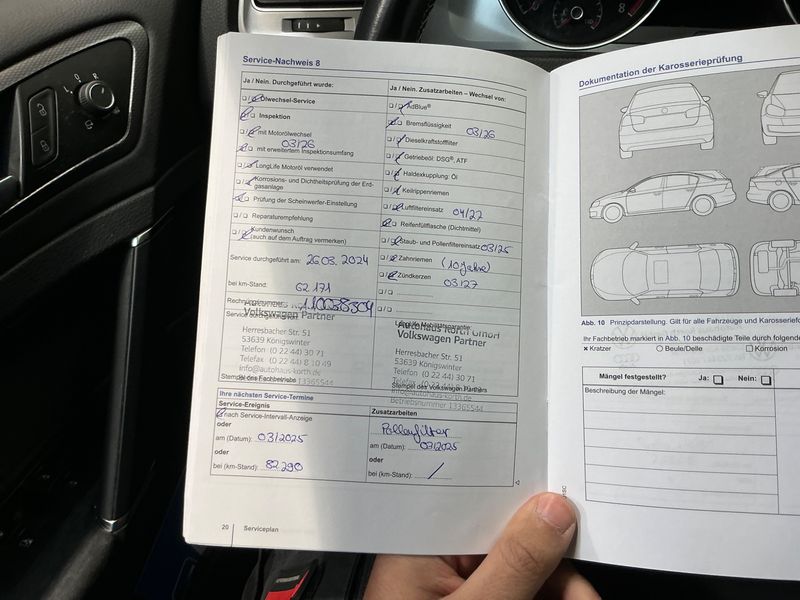 Service-Nachweis 8
Ja / Nein. Durchgeführt wurde:
Ölwechsel-Service
Inspektion
mit Motorölwechsel
03/26
mit erweitertem Inspektionsumfang
LongLife Motoröl verwendet
Korrosions- und Dichtheitsprüfung der Erd-
gasanlage
Prüfung der Scheinwerfer-Einstellung
Reparaturempfehlung
Kundenwunsch
(auch auf dem Auftrag vermerken)
Service durchgeführt am: 26.03.2024
bei km-Stand: 62 171
Rechnungsnummer:
Volkswagen Partner
Herresbacher Str. 51
53639 Königswinter
Telefon (0 22 44) 30 71
Telefax (0 22 44) 8 10 49
info@autohaus-korth.de
Stempel des Fachbetriebs
Ja / Nein. Zusatzarbeiten – Wechsel von:
AdBlue®
Bremsflüssigkeit 03/26
Dieselkraftstofffilter
Getriebeöl: DSG®, ATF
Haldexkupplung: Öl
Keilrippenriemen
Luftfiltereinsatz 04/27
Reifenfüllflasche (Dichtmittel)
Staub- und Pollenfiltereinsatz 03/25
Zahnriemen (10 Jahre)
Zündkerzen 03/27
Autohaus Korth GmbH
Volkswagen Partner
Herresbacher Str. 51
53639 Königswinter
Telefon (0 22 44) 30 71
Stempel des Volkswagen Partners
info@autohaus-korth.de
Betriebsnummer 13365544
Ihre nächsten Service-Termine
Service-Ereignis
nach Service-Intervall-Anzeige
oder
am (Datum): 03/2025
oder
bei (km-Stand): 82 290
Zusatzarbeiten
Pollenfilter
am (Datum): 03/2025
oder
bei (km-Stand): /
20 Serviceplan
Dokumentation der Karosserieprüfung
Abb. 10 Prinzipdarstellung. Gilt für alle Fahrzeuge und Karosseriefo
Ihr Fachbetrieb markiert in Abb. 10 beschädigte Teile durch folgende
× Kratzer ○ Beule/Delle □ Korrosion
Mängel festgestellt? Ja: Nein:
Beschreibung der Mängel: